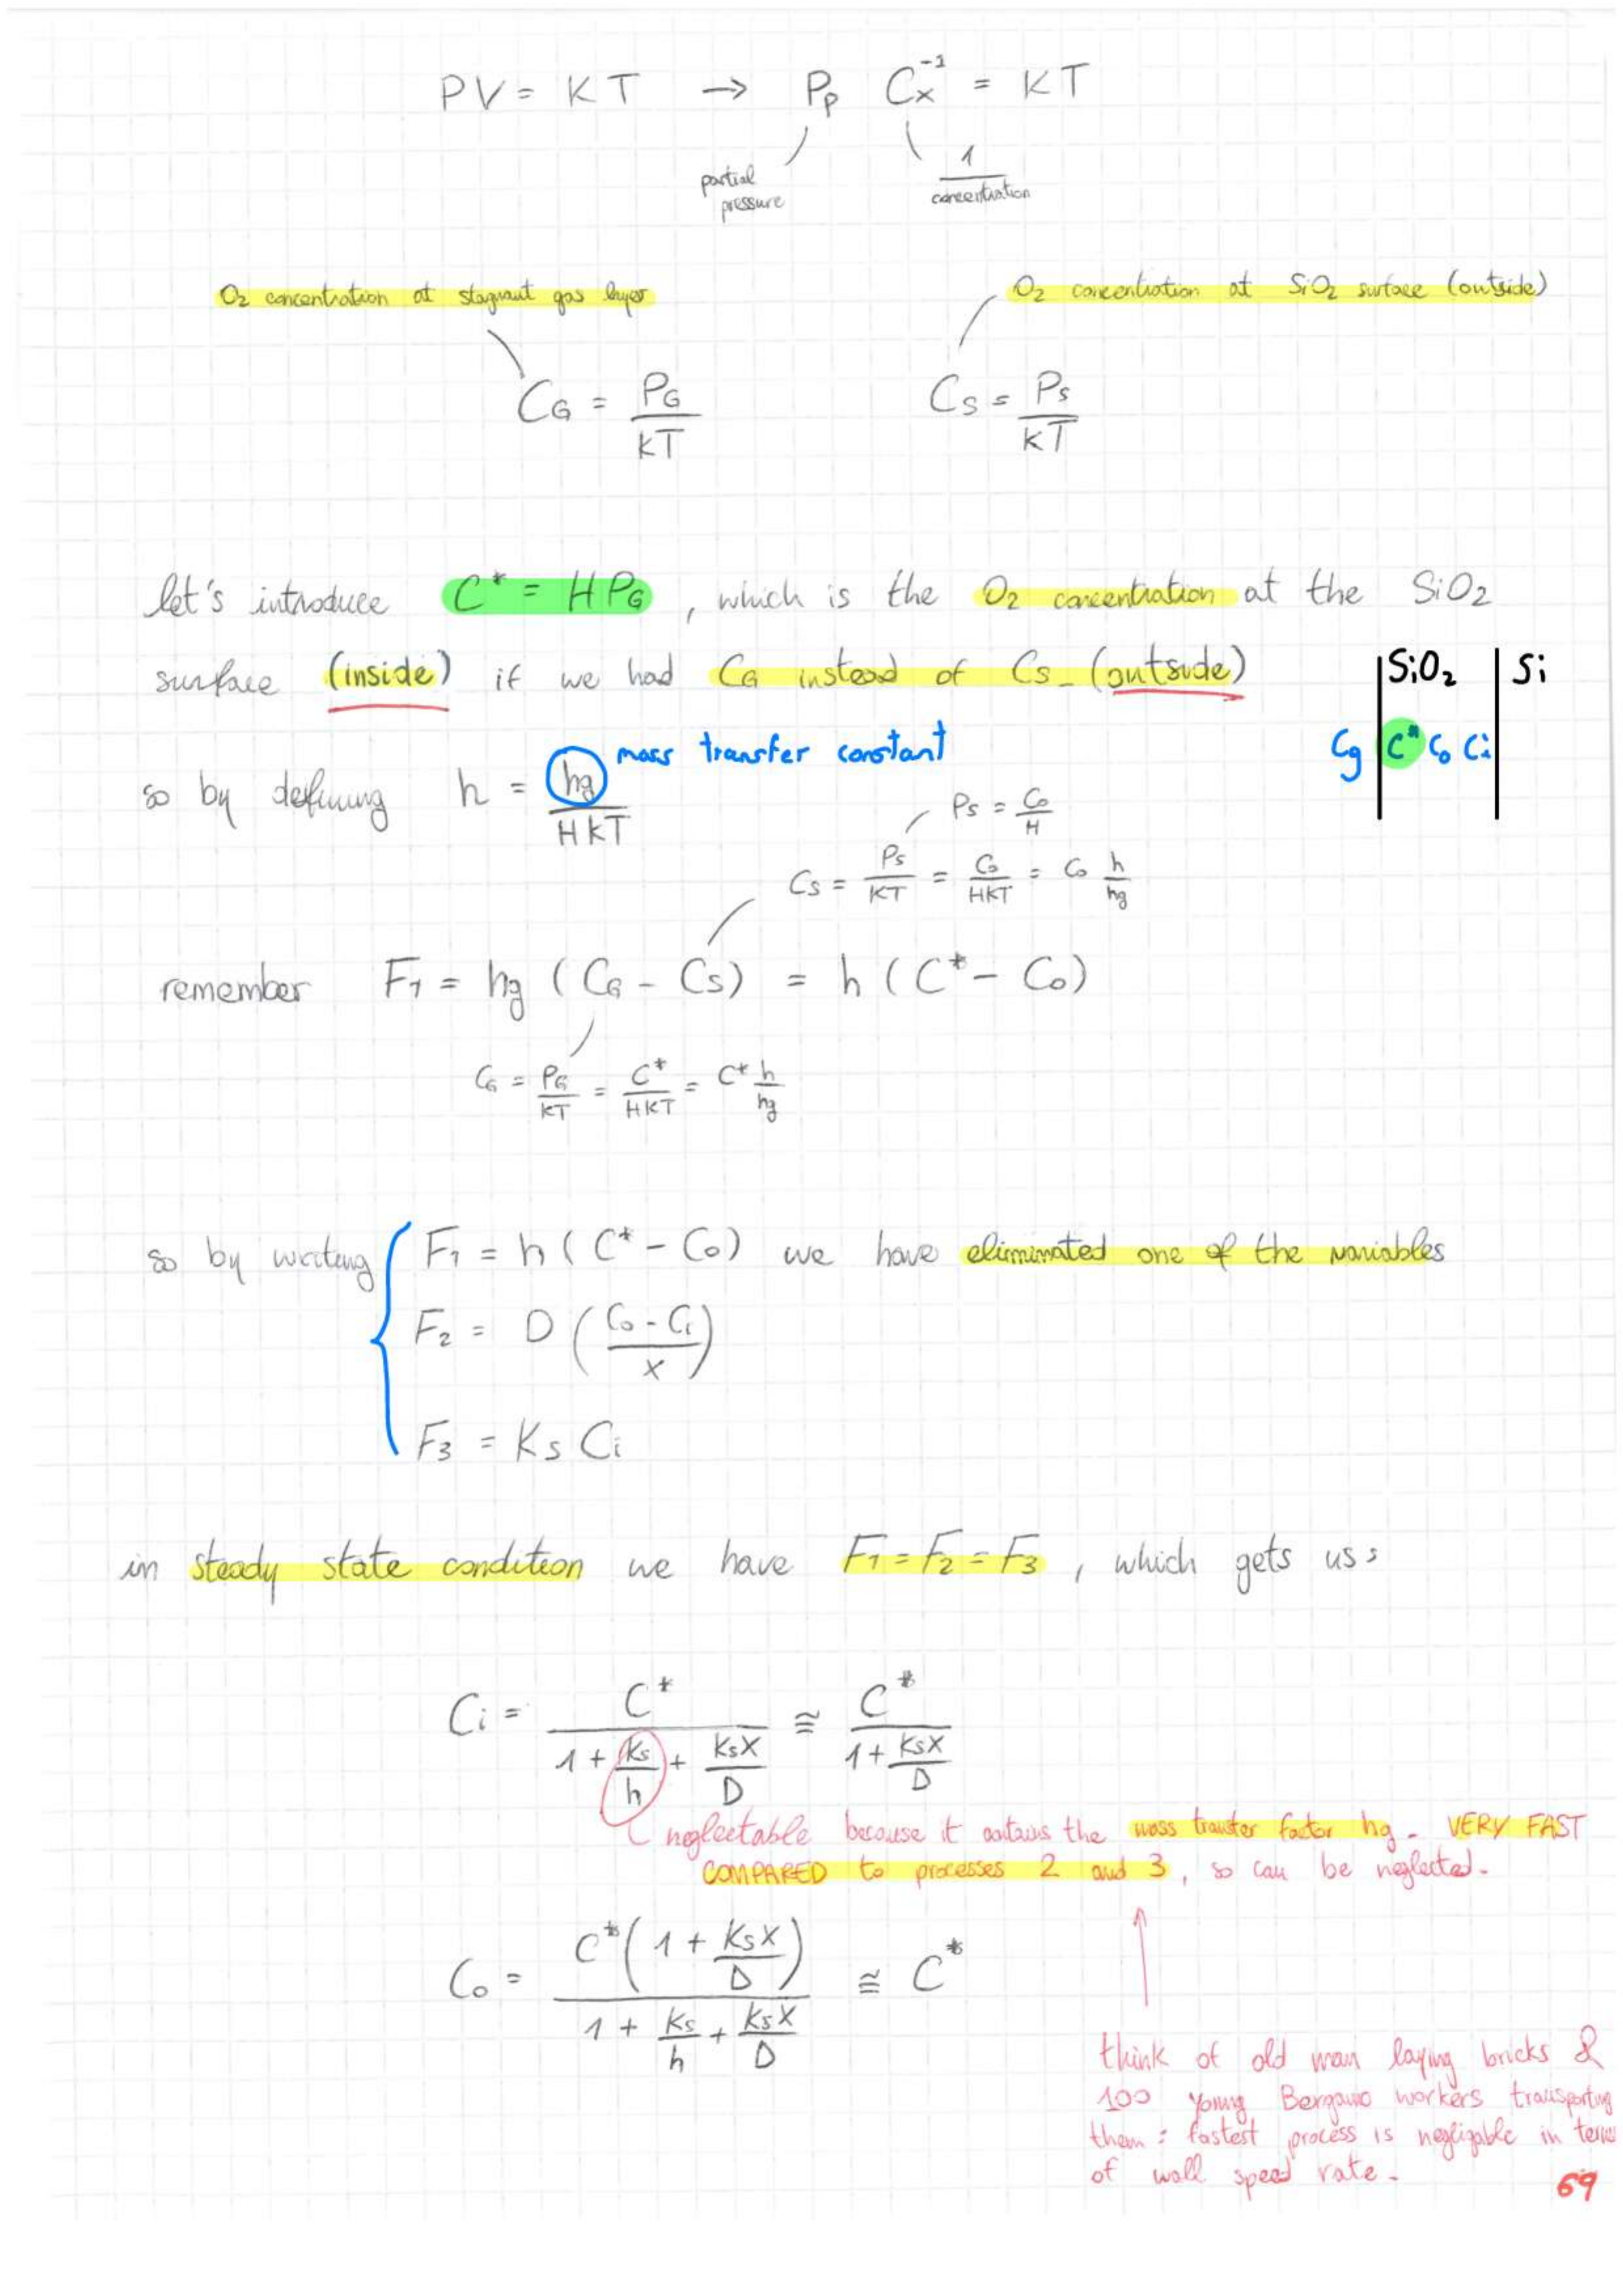 PV = KT → Pp Cx⁻¹ = KT
partial pressure
1/concentration
O2 concentration at stagnant gas layer
O2 concentration at SiO2 surface (outside)
CG = PG/KT
CS = PS/KT
let's introduce C* = H PG , which is the O2 concentration at the SiO2
surface (inside) if we had CG instead of CS - (outside)
SiO2 | Si
Cg | C* Co Ci |
so by defining h = hg/HKT
mass transfer constant
PS = Co/H
CS = PS/KT = Co/HKT = Co h/hg
remember F1 = hg (CG - CS) = h (C* - Co)
CG = PG/KT = C*/HKT = C* h/hg
so by writing F1 = h (C* - Co) we have eliminated one of the variables
F2 = D ((Co - Ci)/X)
F3 = KS Ci
in steady state condition we have F1 = F2 = F3 , which gets us :
Ci = C*/(1 + KS/h + KSX/D) ≅ C*/(1 + KSX/D)
neglectable because it contains the mass transfer factor hg - VERY FAST
COMPARED to processes 2 and 3, so can be neglected.
Co = C*(1 + KSX/D)/(1 + KS/h + KSX/D) ≅ C*
think of old man laying bricks &
100 young Bergamo workers transporting
them : fastest process is negligable in terms
of wall speed rate.
69